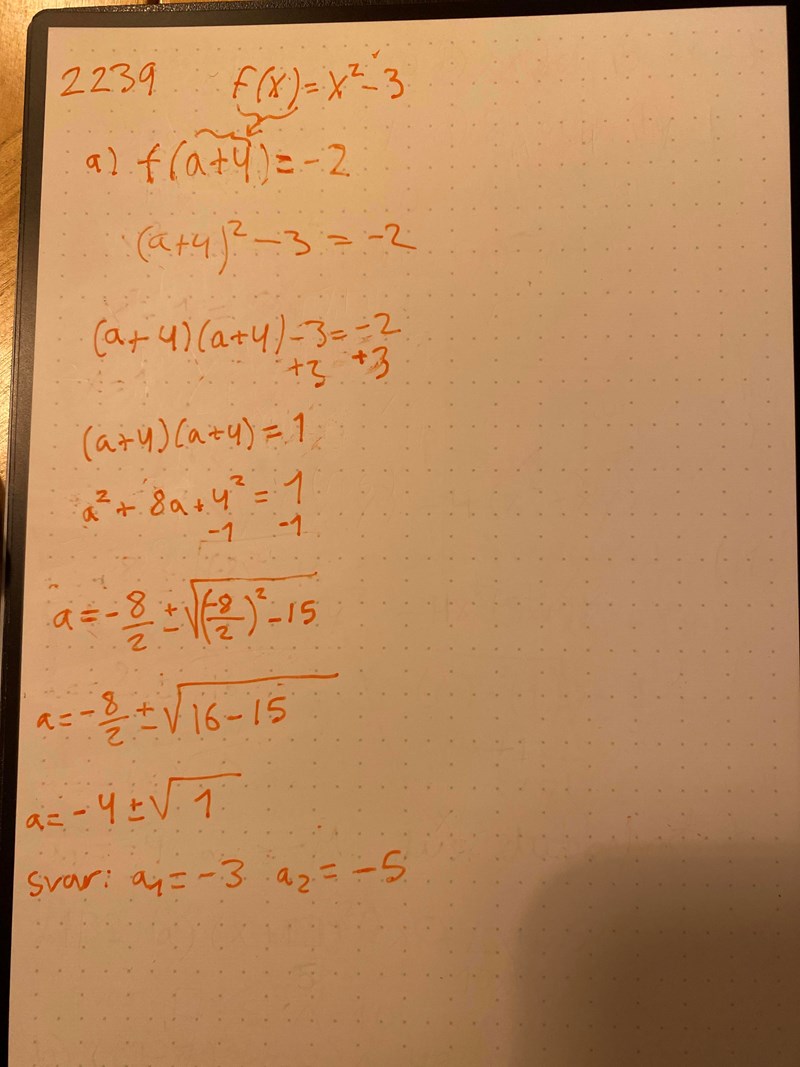 2239 f(x) = x² - 3
a) f(a+4) = -2
(a+4)² - 3 = -2
(a+4)(a+4) - 3 = -2
+3 +3
(a+4)(a+4) = 1
a² + 8a + 4² = 1
-1 -1
a = -8/2 ± √((-8/2)² - 15)
a = -8/2 ± √(16 - 15)
a = -4 ± √1
svar: a₁ = -3 a₂ = -5